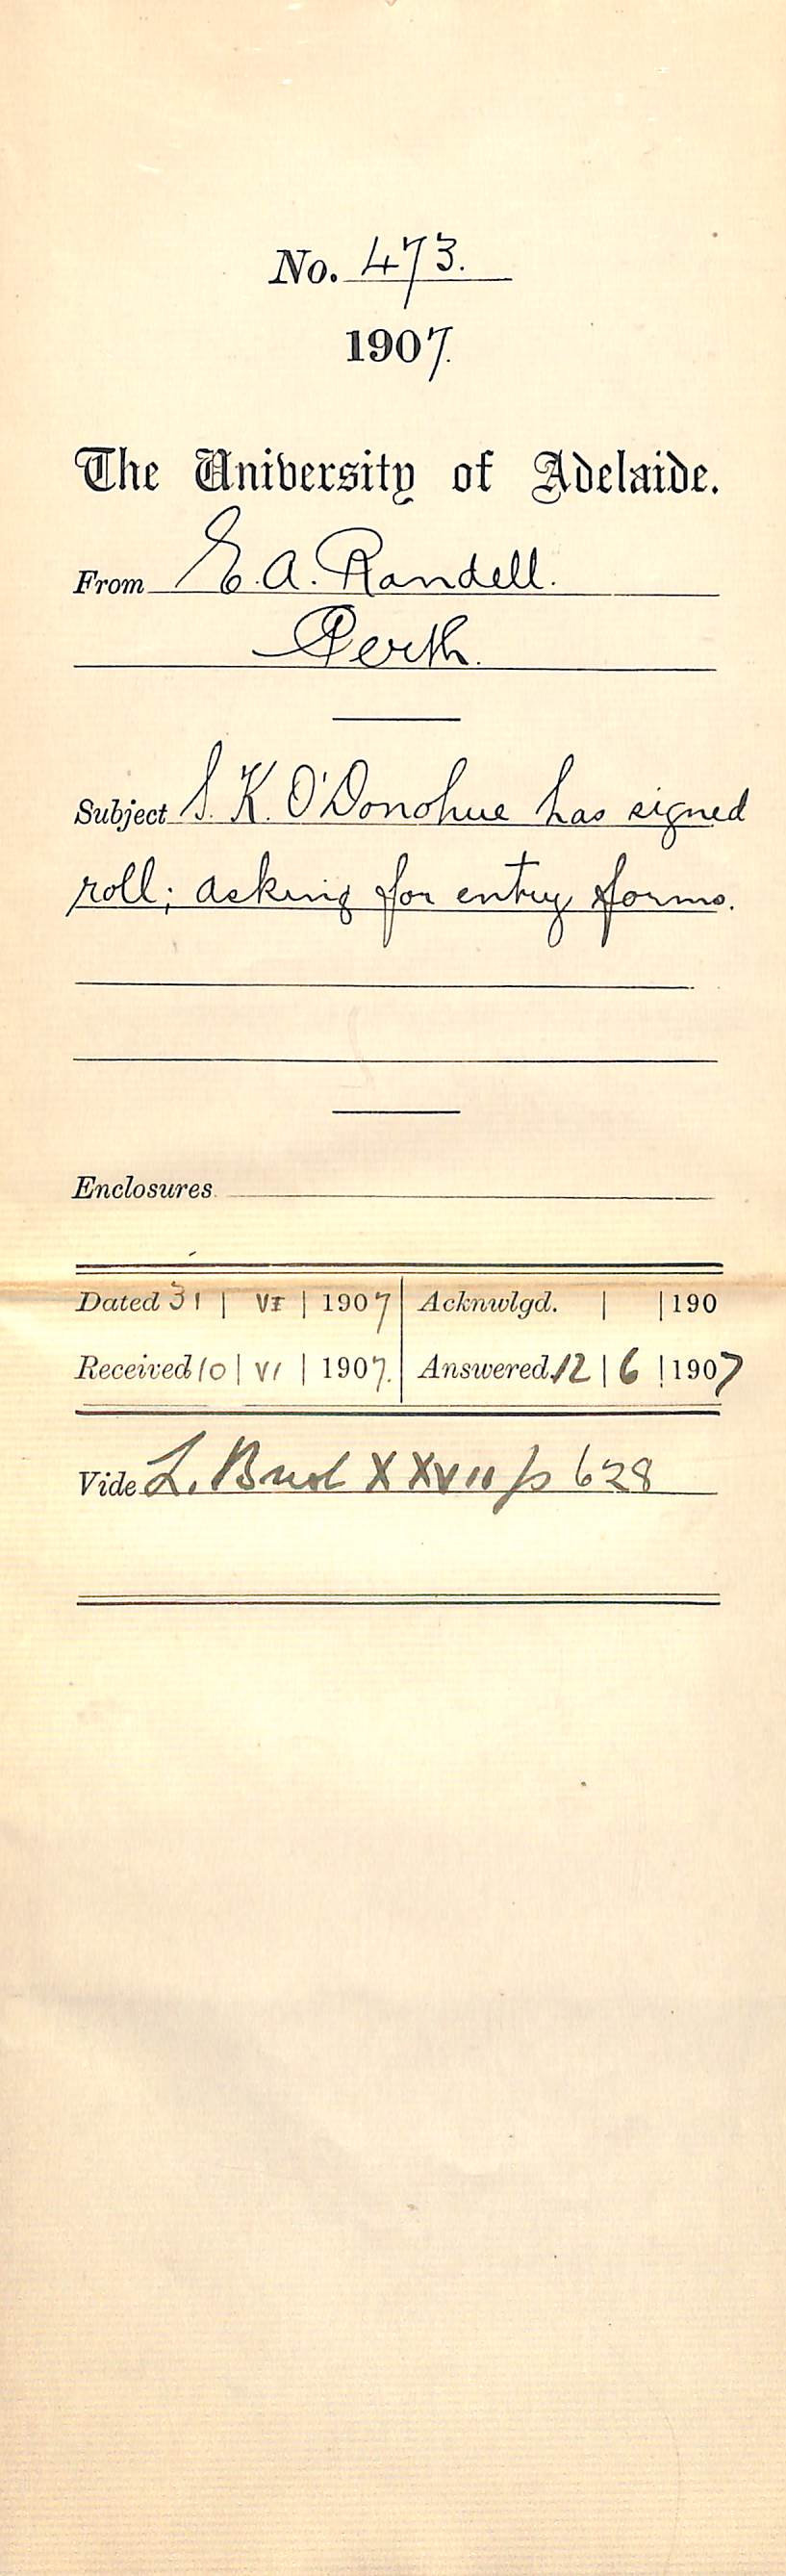 No. 473.
1907.
The University of Adelaide.
From E. A. Randell.
Perth.
Subject S. K. O'Donohue has signed
roll; asking for entry forms.
Enclosures
Dated 31 | VI | 1907 | Acknwlgd. | | 190
Received 10 | VI | 1907. | Answered. 12 | 6 | 1907
Vide L. Book XXVII p 628